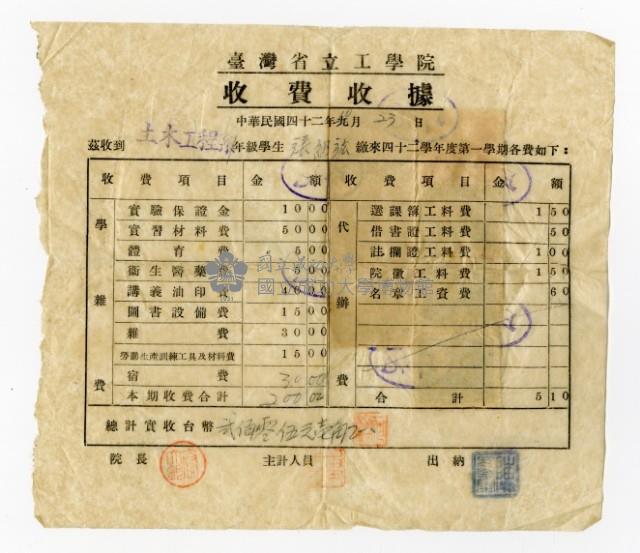 臺灣省立工學院
收費收據
中華民國四十二年九月23日
茲收到 土木工程系 年級學生 張 繳來四十二學年度第一學期各費如下：
收費項目 金額 收費項目 金額
學雜費 代辦費
實驗保證金 1000 選課簿工料費 150
實習材料費 5000 借書證工料費 50
體育費 500 註欄證工料費 100
衛生醫藥費 500 院徽工料費 150
講義油印費 4000 名章工資費 60
圖書設備費 1500
雜費 3000
勞動生產訓練工具及材料費 1500
宿費 3000
本期收費合計 20000 合計 510
總計實收台幣 貳佰零伍元壹角正
院長 主計人員 出納
國立成功大學博物館